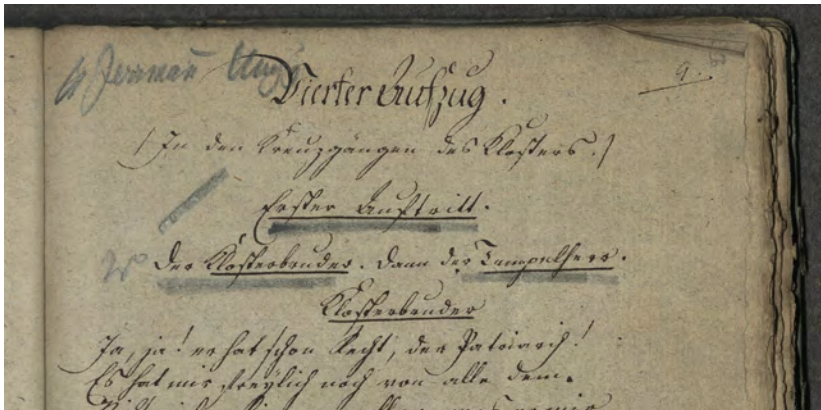 Vierter Aufzug.
9.
/ In den Kreuzgängen des Klosters. /
Erster Auftritt.
Der Klosterbruder. Dann der Tempelherr.
Klosterbruder
Ja, ja! er hat schon Recht, der Patriarch!
Es hat mir freylich noch von alle dem.